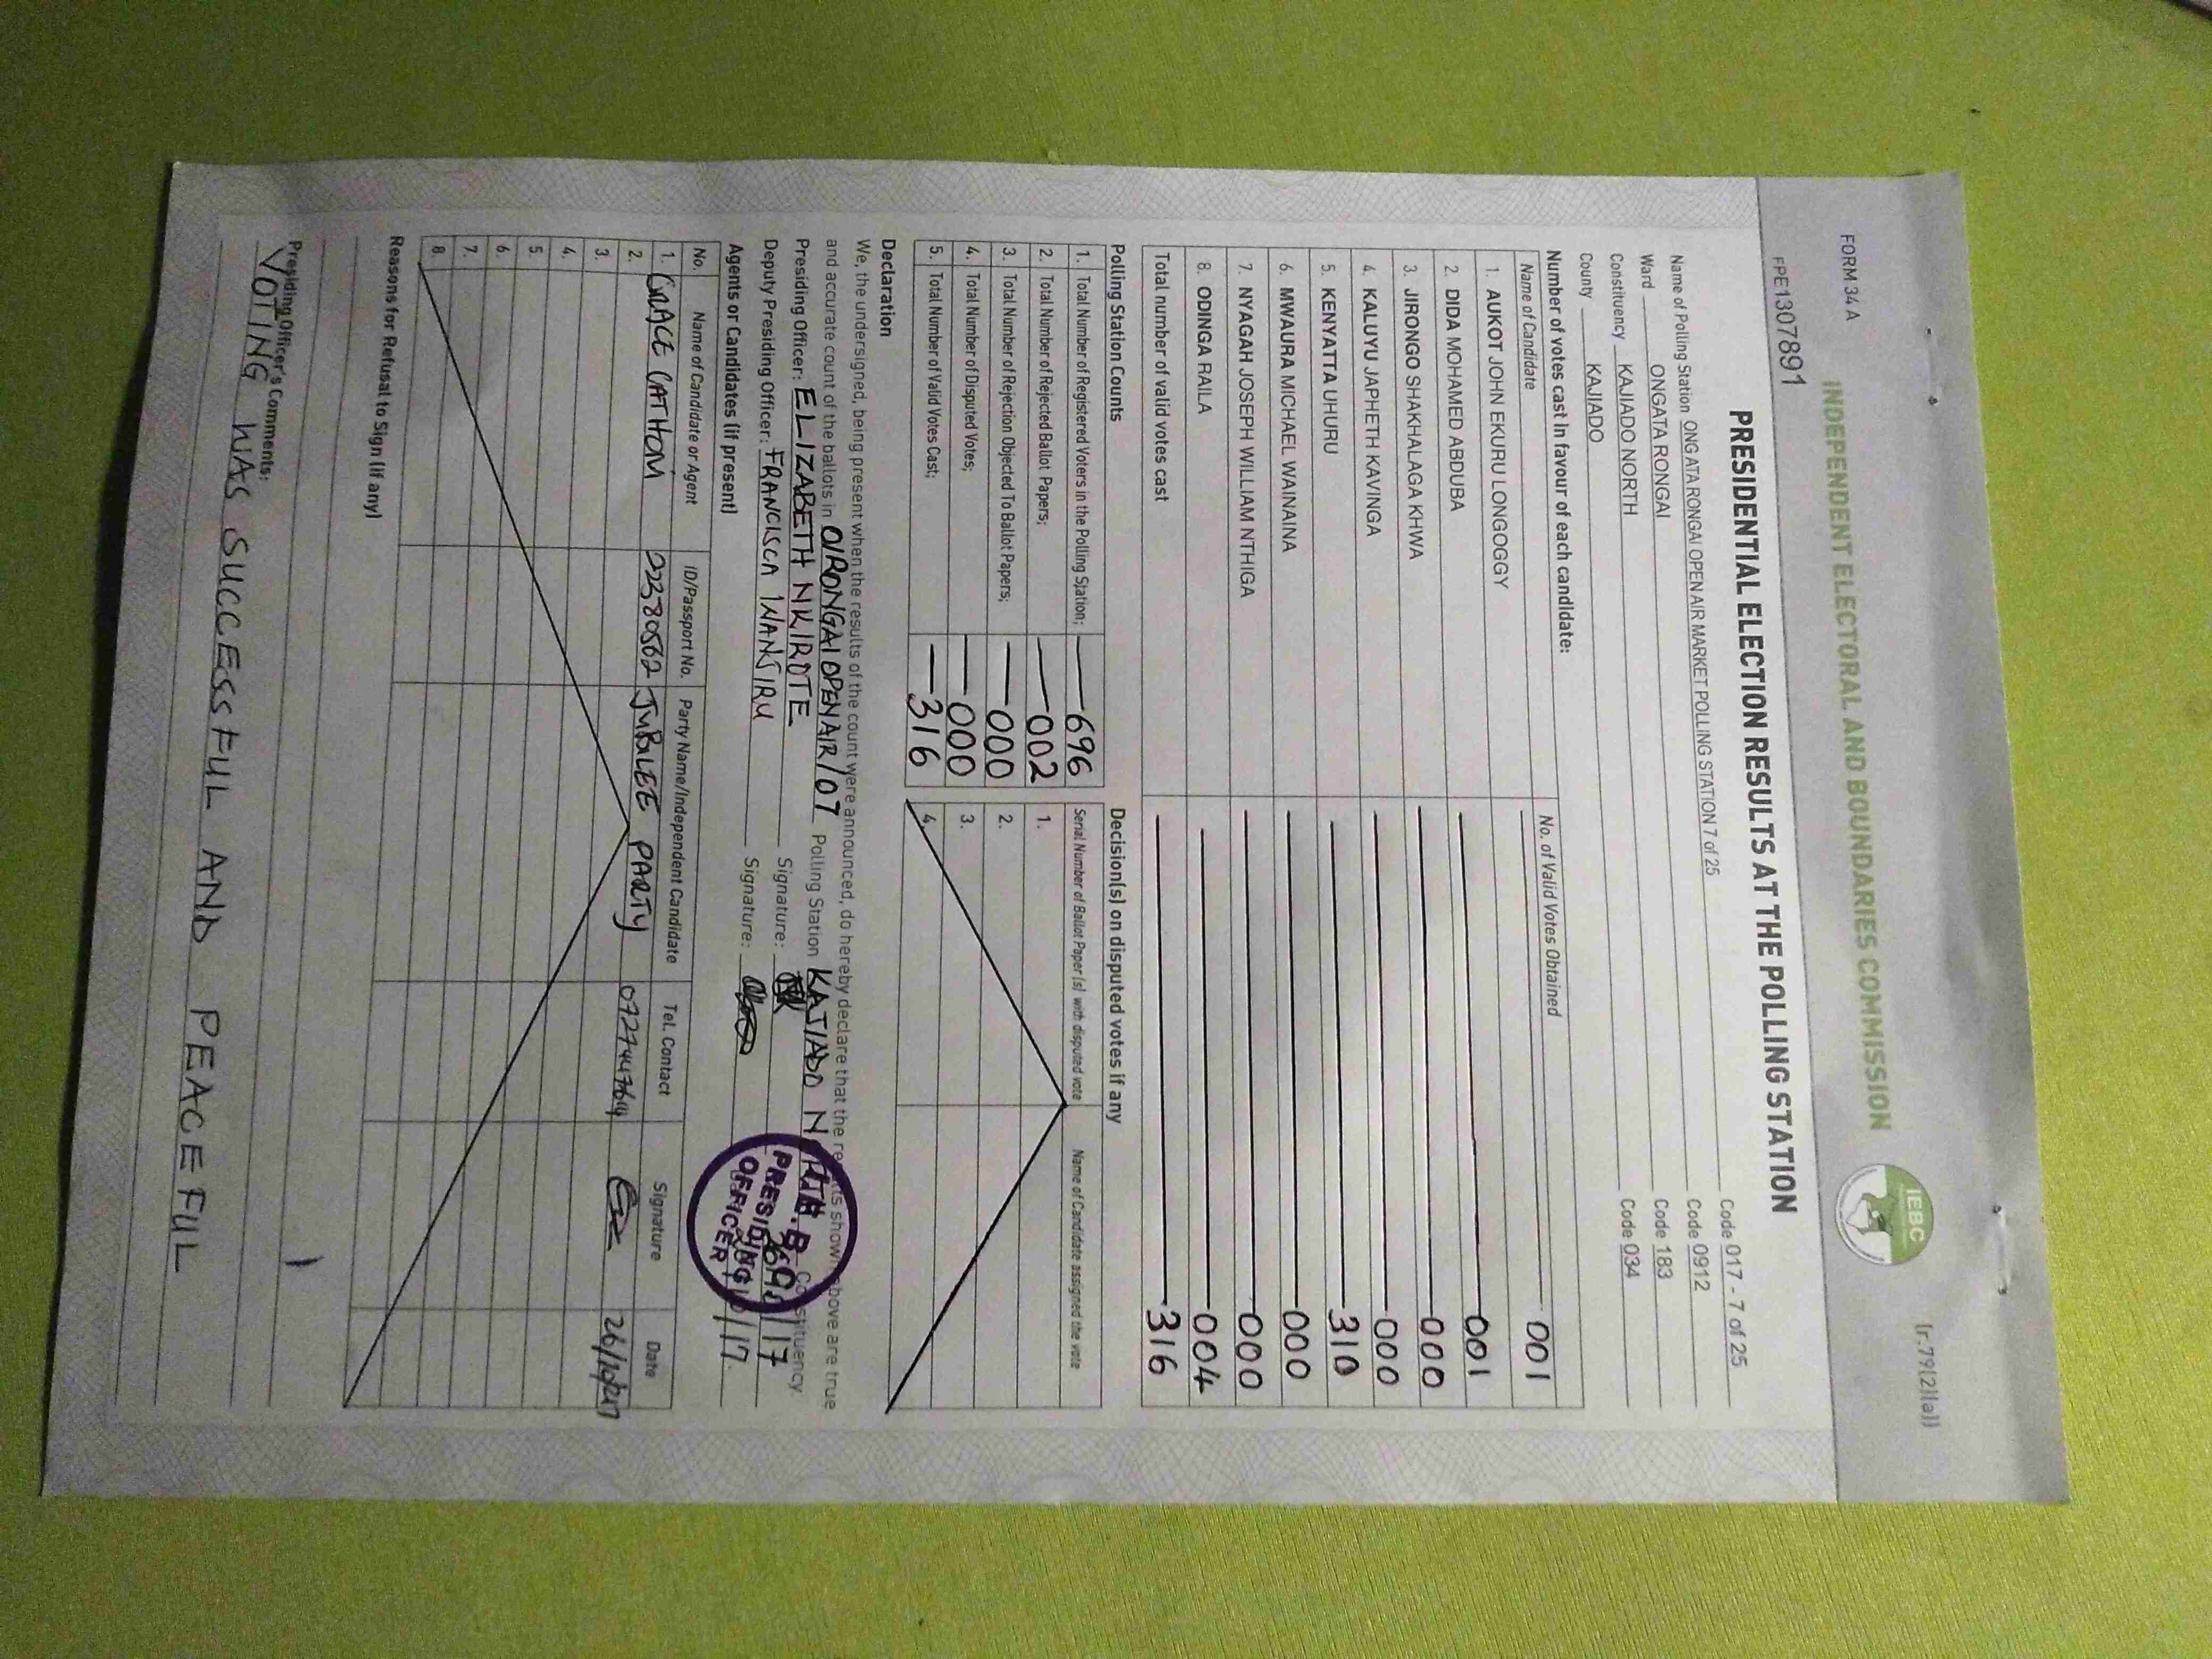 FORM 34A
[r.79(2)(a)]
INDEPENDENT ELECTORAL AND BOUNDARIES COMMISSION
IEBC
FPE1307891
PRESIDENTIAL ELECTION RESULTS AT THE POLLING STATION
Name of Polling Station ONGATA RONGAI OPEN AIR MARKET POLLING STATION 7 of 25 Code 017 - 7 of 25
Ward ONGATA RONGAI Code 0912
Constituency KAJIADO NORTH Code 183
County KAJIADO Code 034
Number of votes cast in favour of each candidate:
Name of Candidate No. of Valid Votes Obtained
1. AUKOT JOHN EKURU LONGOGGY 001
2. DIDA MOHAMED ABDUBA 001
3. JIRONGO SHAKHALAGA KHWA 000
4. KALUYU JAPHETH KAVINGA 000
5. KENYATTA UHURU 310
6. MWAURA MICHAEL WAINAINA 000
7. NYAGAH JOSEPH WILLIAM NTHIGA 000
8. ODINGA RAILA 004
Total number of valid votes cast 316
Polling Station Counts
1. Total Number of Registered Voters in the Polling Station; 696
2. Total Number of Rejected Ballot Papers; 002
3 Total Number of Rejection Objected To Ballot Papers; 000
4. Total Number of Disputed Votes; 000
5. Total Number of Valid Votes Cast; 316
Decision(s) on disputed votes if any
Serial Number of Ballot Paper(s) with disputed vote Name of Candidate assigned the vote
1.
2.
3.
4.
Declaration
We, the undersigned, being present when the results of the count were announced, do hereby declare that the results shown above are true
and accurate count of the ballots in O/RONGAI OPEN AIR/07 Polling Station KAJIADO NORTH Constituency
Presiding Officer: ELIZABETH NKIROTE Signature:
Deputy Presiding Officer: FRANCISCA WANJIRU Signature:
PRESIDING
OFFICER
Agents or Candidates (if present)
No. Name of Candidate or Agent ID/Passport No. Party Name/Independent Candidate Tel. Contact Signature Date
1. GRACE GATHONI 22380562 JUBILEE PARTY 26/10/2017
2.
3.
4.
5
6.
7.
8
Reasons for Refusal to Sign (if any)
Presiding Officer's Comments:
VOTING WAS SUCCESSFUL AND PEACEFUL